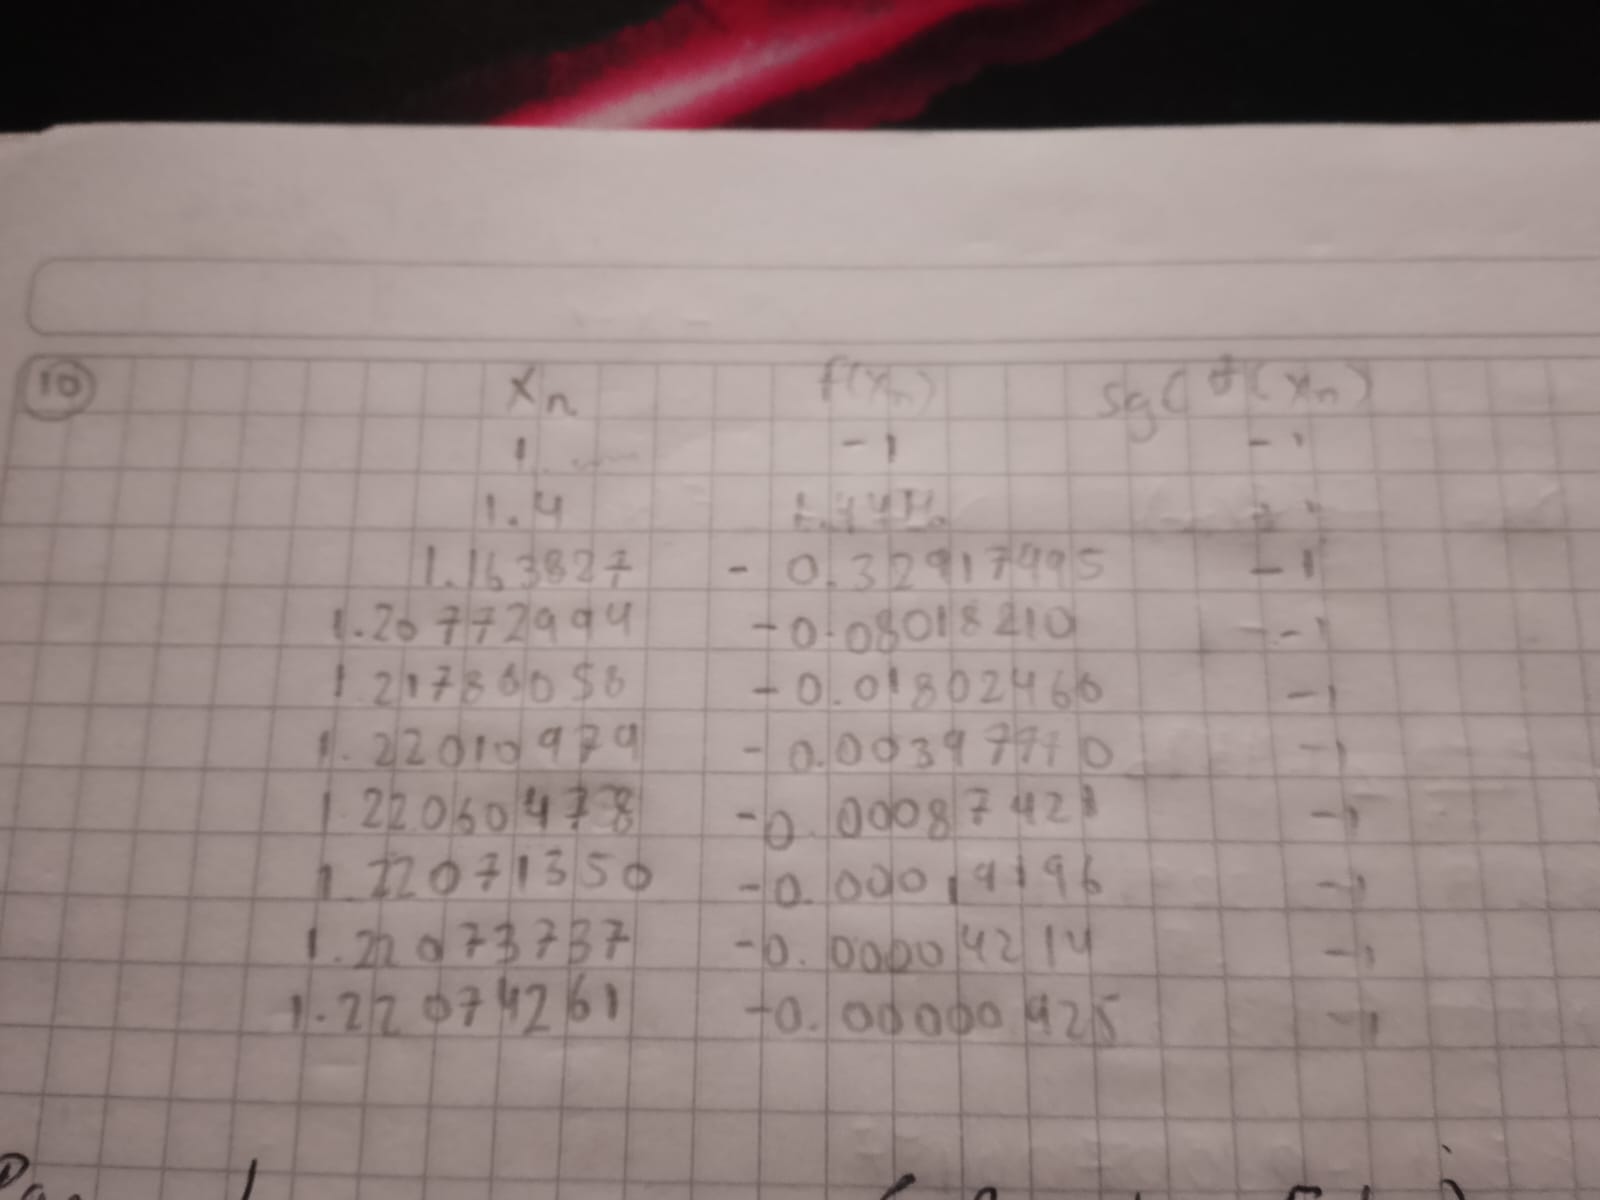 10 Xn f(xn) sg(f(xn)
1 -1 -1
1.4
1.163827 -0.32917495 -1
1.20772994 -0.08018210 -1
1.21786058 -0.01802460 -1
1.22010979 -1
1.22060478 -0.00087421 -1
1.22071350 -0.00019196 -1
1.22073737 -0.00004214 -1
1.22074261 -0.00000925 -1